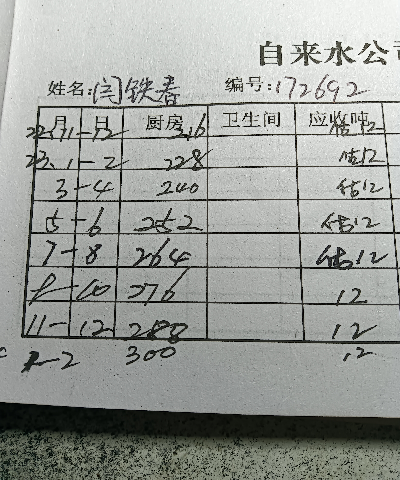 自来水公司
姓名:闫铁春 编号:172692
月 日 厨房 卫生间 应收吨
22.11-12 216 估12
23.1-2 228 估12
3-4 240 估12
5-6 252 估12
7-8 264 估12
9-10 276 12
11-12 288 12
1-2 300 12